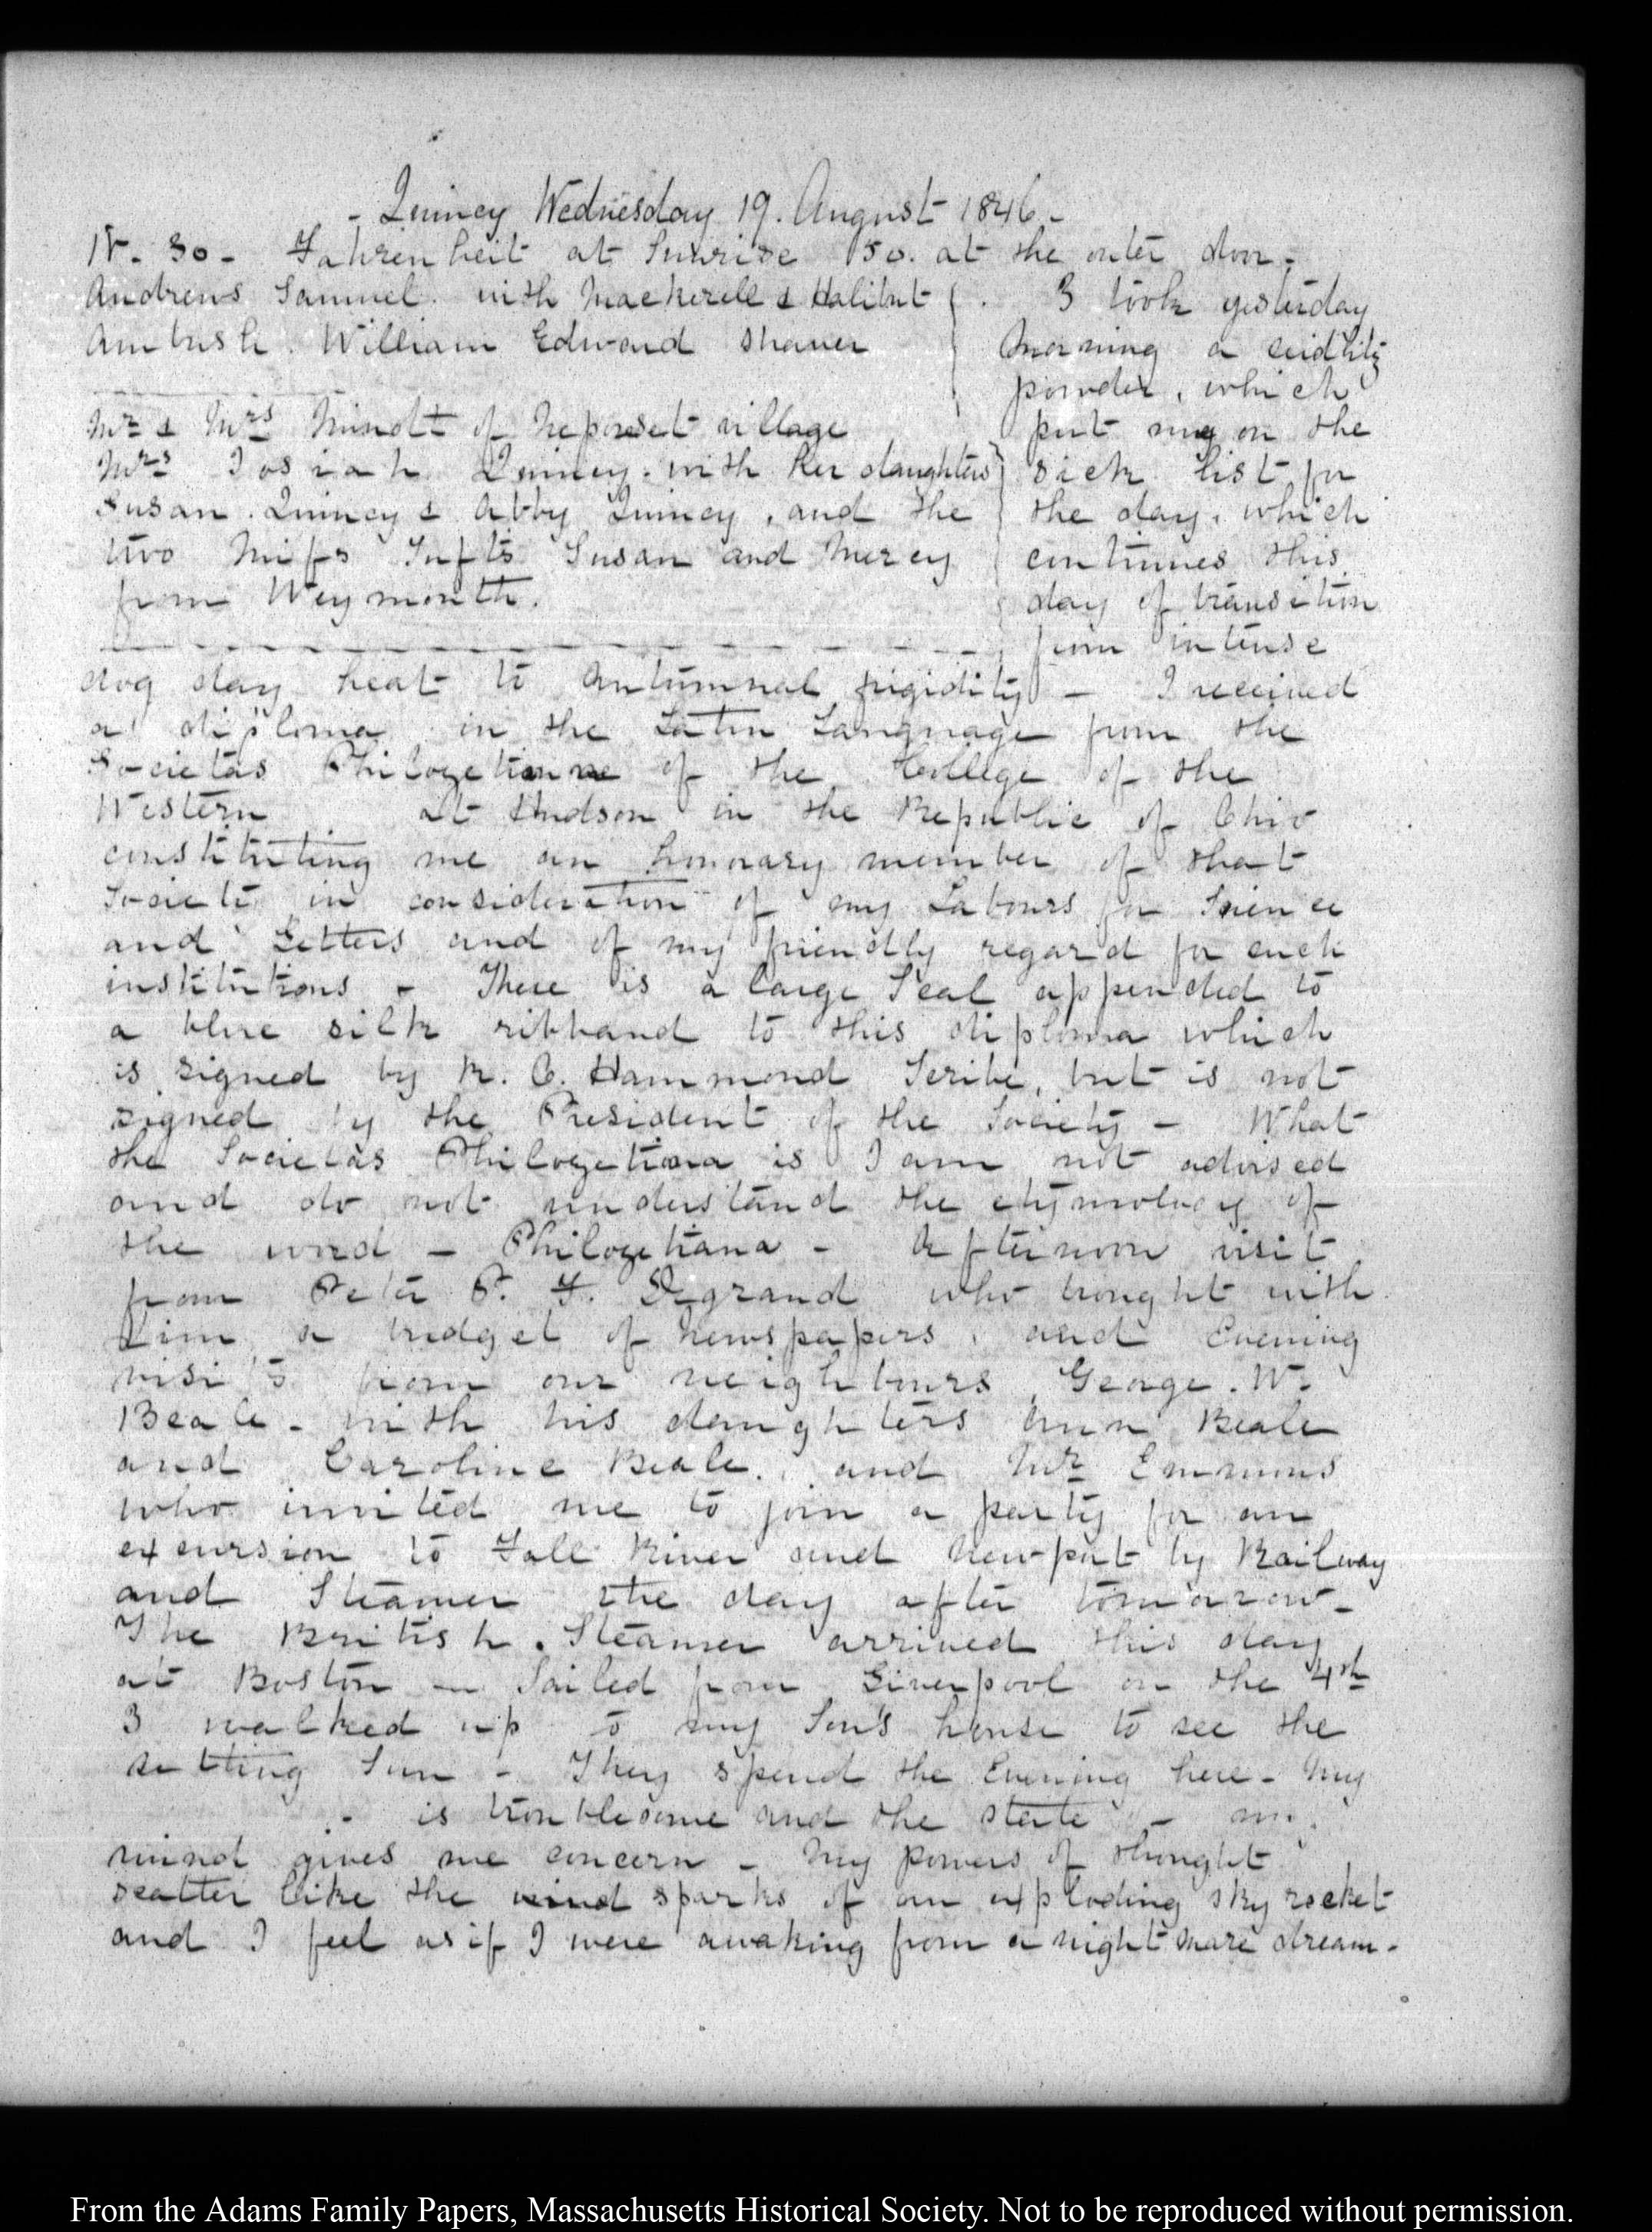 - Quincy Wednesday 19. August 1846 -
IV. 30 - Fahrenheit at Sunrise 50. at the outer door.
Andrews Samuel. with Mackerell & Halibut
Ambush. William Edward Shaver
Mr & Mrs Minott of Neponset village
Mrs Josiah Quincy. with her daughters
Susan Quincy & Abby Quincy, and the
two Miss Tufts Susan and Mercy
from Weymouth.
I took yesterday
morning a seidlitz
powder, which
put me on the
sick list for
the day, which
continues this
day of transition
from intense
dog day heat to Autumnal frigidity - I received
a diploma in the Latin Language from the
Societas Philozetianae of the College of the
Western at Hudson in the Republic of Ohio
constituting me an honorary member of that
Society in consideration of my Labours for Science
and Letters and of my friendly regard for such
institutions - There is a large Seal appended to
a blue silk ribband to this diploma which
is signed by H. C. Hammond Scribe, but is not
signed by the President of the Society - What
the Societas Philozetiana is I am not advised
and do not understand the etymology of
the word - Philozetiana - Afternoon visit
from Peter P. F. Degrand who brought with
him a budget of newspapers, and Evening
visits from our neighbours George. W.
Beale - with his daughters Ann Beale
and Caroline Beale. and Mr Emmons
who invited me to join a party for an
excursion to Fall River and Newport by Railway
and Steamer the day after tomorrow -
The British Steamer arrived this day
at Boston - Sailed from Liverpool on the 4th
I walked up to my Son's house to see the
setting Sun - They spend the Evening here - My
is troublesome and the state - my
mind gives me concern - My powers of thought
scatter like the sparks of an exploding sky rocket
and I feel as if I were awaking from a night mare dream -
From the Adams Family Papers, Massachusetts Historical Society. Not to be reproduced without permission.